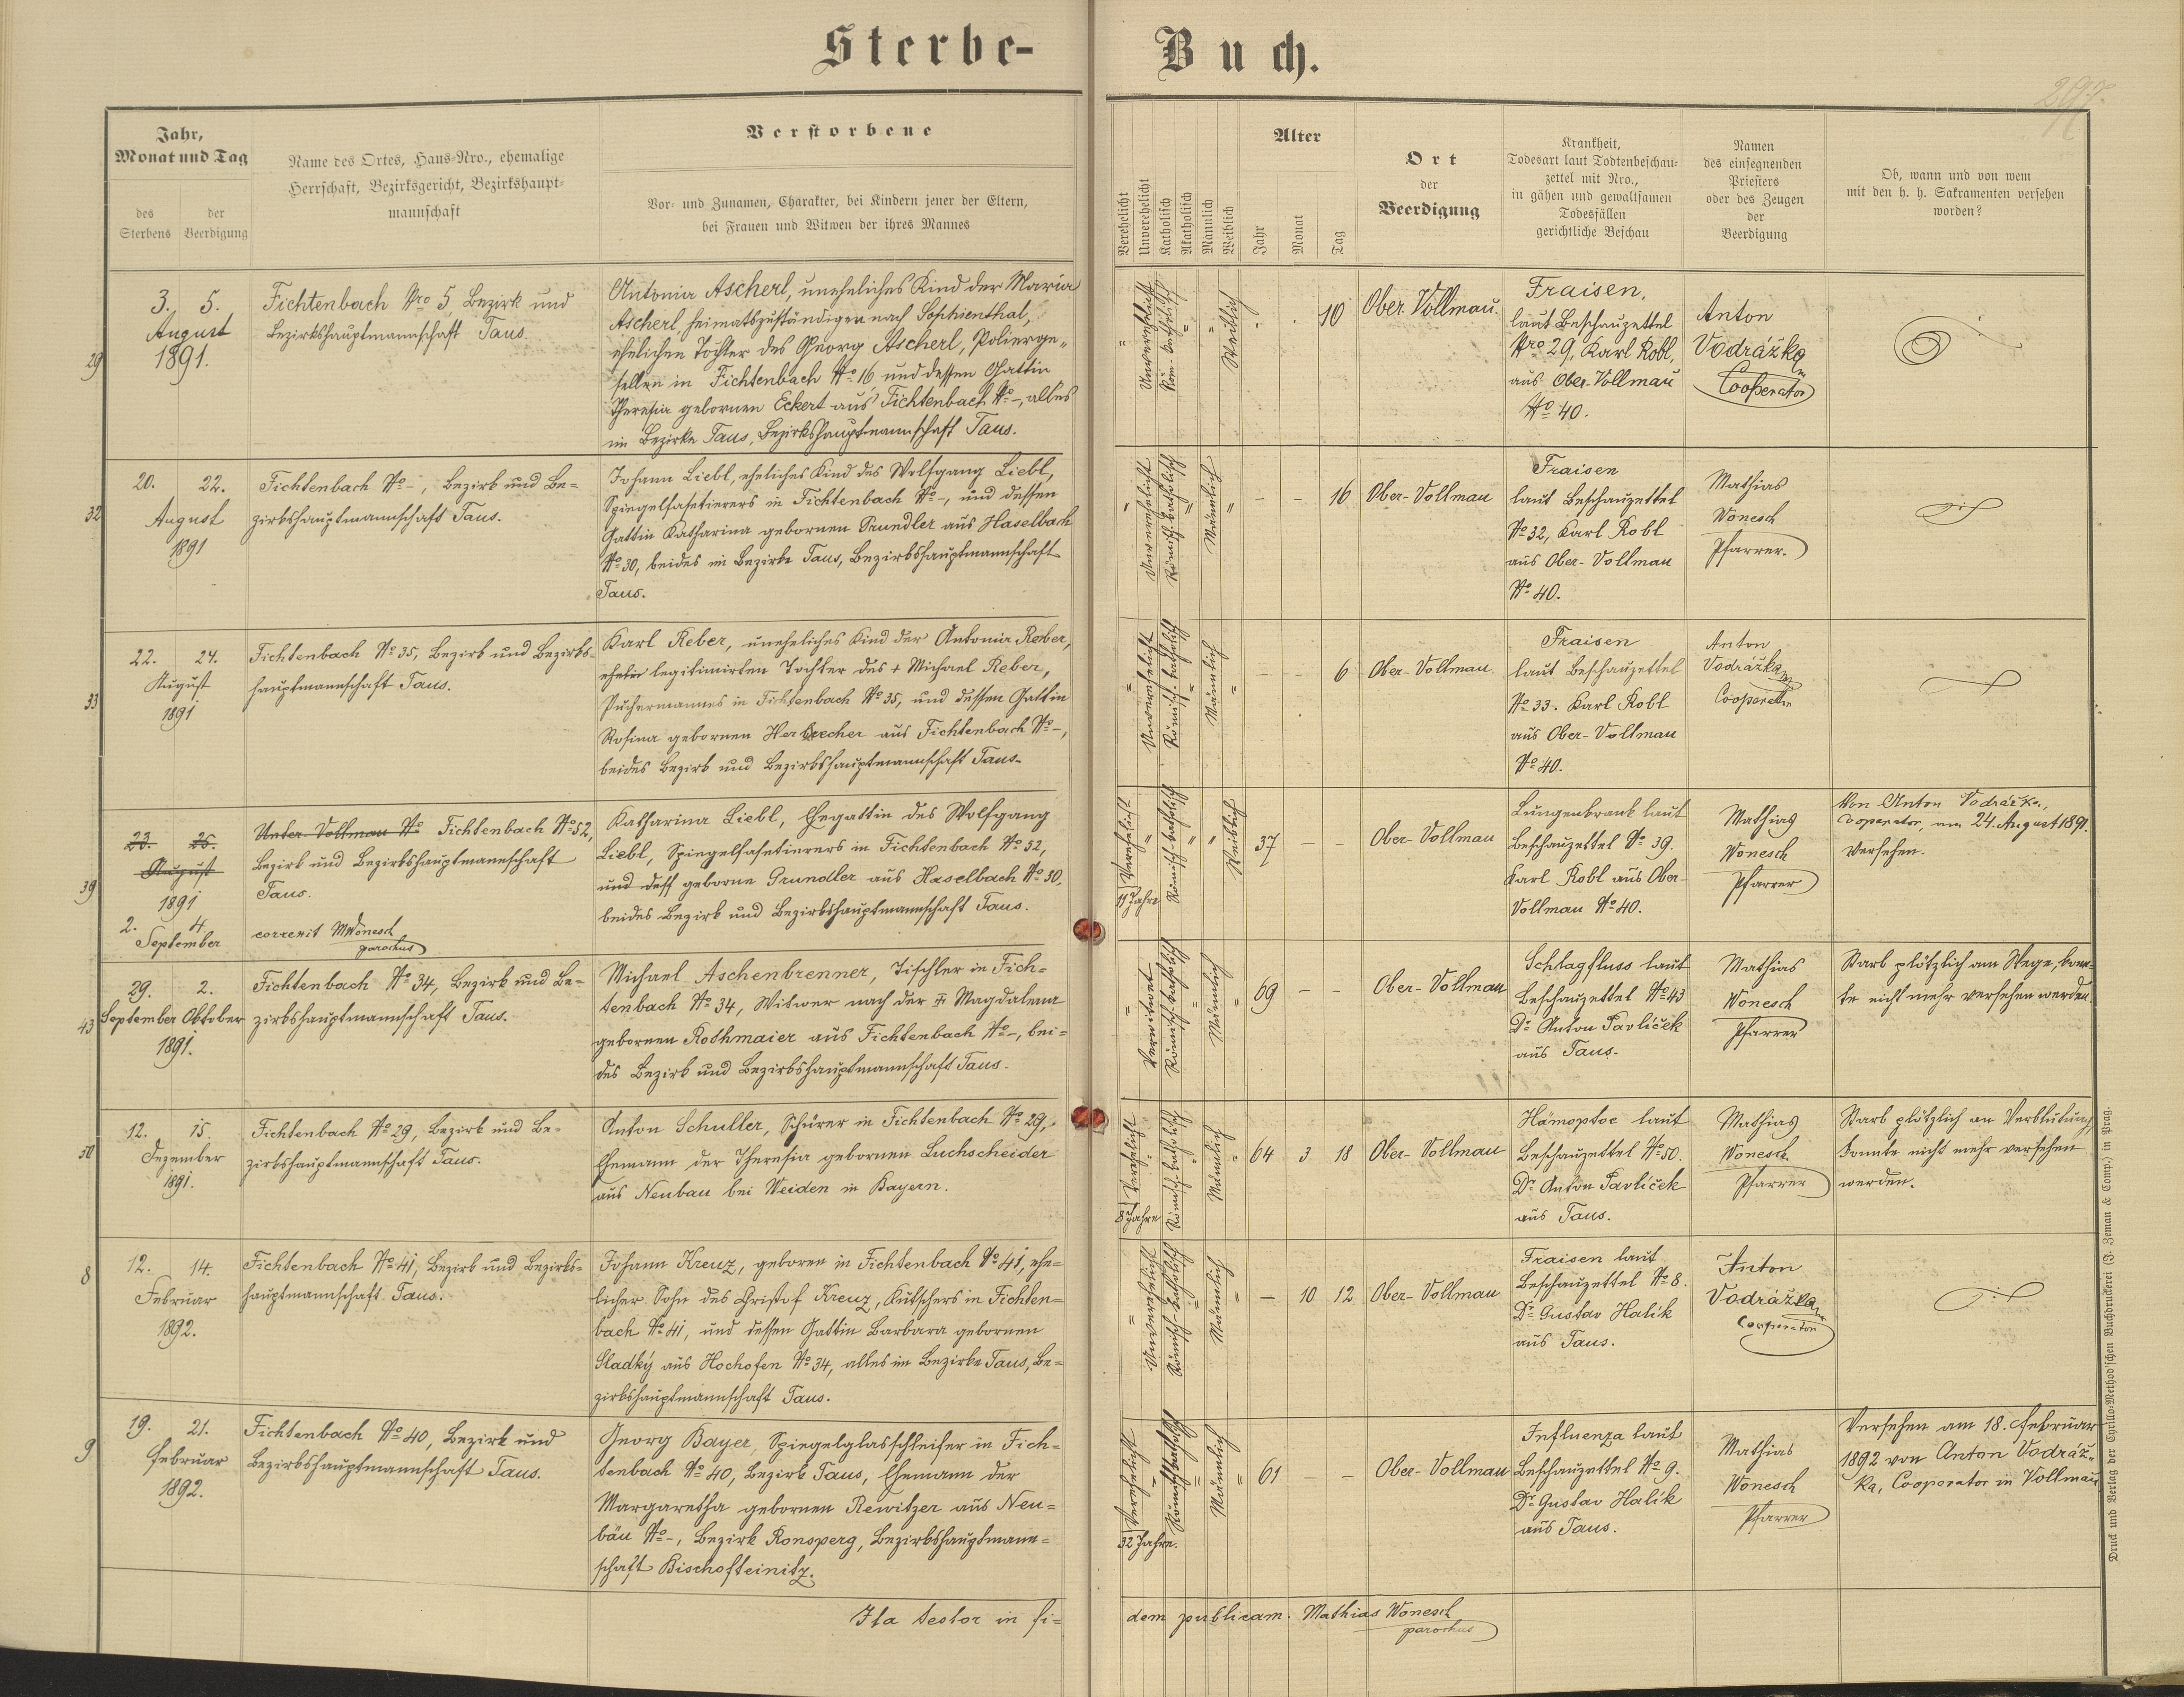 Sterbe-
Buch.
297.
Jahr,
Monat und Tag
des Sterbens
der Beerdigung
Name des Ortes, Haus-Nro., ehemalige
Herrschaft, Bezirksgericht, Bezirkshaupt-
mannschaft
Verstorbene
Vor- und Zunamen, Charakter, bei Kindern jener der Eltern,
bei Frauen und Witwen der ihres Mannes
Verehelicht
Unverehelicht
Katholisch
Akatholisch
Männlich
Weiblich
Alter
Jahr
Monat
Tag
Ort
der
Beerdigung
Krankheit,
Todesart laut Todtenbeschau-
zettel mit Nro.,
in gähen und gewaltsamen
Todesfällen
gerichtliche Beschau
Namen
des einsegnenden
Priesters
oder des Zeugen
der
Beerdigung
Ob, wann und von wem
mit den h. h. Sakramenten versehen
worden?
29
3. 5.
August
1891.
Fichtenbach Nro 5, Bezirk und
Bezirkshauptmannschaft Taus.
Antonia Ascherl, uneheliches Kind der Maria
Ascherl, heimatszuständigen nach Sophienthal,
ehelichen Tochter des Georg Ascherl, Polierge-
sellen in Fichtenbach No 16, und dessen Gattin
Theresia gebornen Eckert aus Fichtenbach No -, alles
im Bezirke Taus, Bezirkshauptmannschaft Taus.
Unverehelicht
Röm. katholisch
Weiblich
10
Ober Vollmau.
Fraisen,
laut Beschauzettel
Nro 29, Karl Robl,
aus Ober-Vollmau
No 40.
Anton
Vodrážka
Cooperator
32
20. 22.
August
1891
Fichtenbach No -, Bezirk und Be-
zirkshauptmannschaft Taus.
Johann Liebl, eheliches Kind des Wolfgang Liebl,
Spiegelfasetierers in Fichtenbach No -, und dessen
Gattin Katharina gebornen Grundler aus Haselbach
No 30, beides im Bezirke Taus, Bezirkshauptmannschaft
Taus.
Unverehelicht
Römisch-katholisch
Männlich
- - 16
Ober-Vollmau
Fraisen
laut Beschauzettel
No 32, Karl Robl
aus Ober-Vollmau
No 40.
Mathias
Wonesch
Pfarrer.
33
22. 24.
August
1891
Fichtenbach No 35, Bezirk und Bezirks-
hauptmannschaft Taus.
Karl Reber, uneheliches Kind der Antonia Reber,
legitimirten Tochter des + Michael Reber,
Puchermannes in Fichtenbach No 35, und dessen Gattin
Rosina gebornen Herbrecher aus Fichtenbach No -,
beides Bezirk und Bezirkshauptmannschaft Taus.
Unverehelicht
Römisch-katholisch
Männlich
- - 6
Ober-Vollmau.
Fraisen
laut Beschauzettel
No 33. Karl Robl
aus Ober-Vollmau
No 40.
Anton
Vodrážka
Cooperator
39
23. 25.
August
1891
2. 4.
September
Unter-Vollmau No Fichtenbach No 52,
Bezirk und Bezirkshauptmannschaft
Taus.
correxit MWonesch
parochus
Katharina Liebl, Ehegattin des Wolfgang
Liebl, Spiegelfasetierers in Fichtenbach No 52,
und dess geborne Grundler aus Haselbach No 30,
beides Bezirk und Bezirkshauptmannschaft Taus.
Verehelicht
11 Jahre
Römisch-katholisch
Weiblich
37 - -
Ober-Vollmau
Lungenkrank laut
Beschauzettel No 39.
Karl Robl aus Ober-
Vollmau No 40.
Mathias
Wonesch
Pfarrer
Von Anton Vodrážka,
Cooperator, am 24. August 1891.
versehen.
43
29. 2.
September Oktober
1891.
Fichtenbach No 34, Bezirk und Be-
zirkshauptmannschaft Taus.
Michael Aschenbrenner, Tischler in Fich-
tenbach No 34, Witwer nach der + Magdalena
gebornen Rothmaier aus Fichtenbach No -, bei-
des Bezirk und Bezirkshauptmannschaft Taus.
Verwitwet
Römisch-katholisch
Männlich
69 - -
Ober-Vollmau
Schlagfluss laut
Beschauzettel No 43
Dr Anton Pavlíček
aus Taus.
Mathias
Wonesch
Pfarrer
Starb plötzlich am Wege, konn-
te nicht mehr versehen werden.
50
12. 15.
Dezember
1891.
Fichtenbach No 29, Bezirk und Be-
zirkshauptmannschaft Taus.
Anton Schuller, Schürer in Fichtenbach No 29,
Ehemann der Theresia gebornen Luchscheider
aus Neubau bei Weiden in Bayern.
Verehelicht
8 Jahre
Römisch-katholisch
Männlich
64 3 18
Ober-Vollmau
Hämoptoe laut
Beschauzettel No 50.
Dr Anton Pavlíček
aus Taus.
Mathias
Wonesch
Pfarrer
Starb plötzlich an Verblutung,
konnte nicht mehr versehen
werden.
8
12. 14.
Februar
1892.
Fichtenbach No 41, Bezirk und Bezirks-
hauptmannschaft Taus.
Johann Kreuz, geboren in Fichtenbach No 41, ehe-
licher Sohn des Christof Kreuz, Kutschers in Fichten-
bach No 41, und dessen Gattin Barbara gebornen
Sladký aus Hochofen No 34, alles im Bezirke Taus, Be-
zirkshauptmannschaft Taus.
Unverehelicht
Römisch-katholisch
Männlich
- 10 12
Ober-Vollmau
Fraisen laut
Beschauzettel No 8.
Dr Gustav Halík
aus Taus.
Anton
Vodrážka
Cooperator
9
19. 21.
Februar
1892.
Fichtenbach No 40, Bezirk und
Bezirkshauptmannschaft Taus.
Georg Bayer, Spiegelglasschleifer in Fich-
tenbach No 40, Bezirk Taus, Ehemann der
Margaretha gebornen Rewitzer aus Neu-
bäu No -, Bezirk Ronsperg, Bezirkshauptmann-
schaft Bischofteinitz.
Verehelicht
32 Jahre.
Römisch katholisch
Männlich
61 - -
Ober-Vollmau
Influenza laut
Beschauzettel No 9.
Dr Gustav Halík
aus Taus.
Mathias
Wonesch
Pfarrer
Versehen am 18. Februar
1892 von Anton Vodráž-
ka, Cooperator in Vollmau
Ita testor in fi-
dem publicam. Mathias Wonesch
parochus
Druck und Verlag der Cyrillo-Method'schen Buchdruckerei (J. Zeman & Comp.) in Prag.